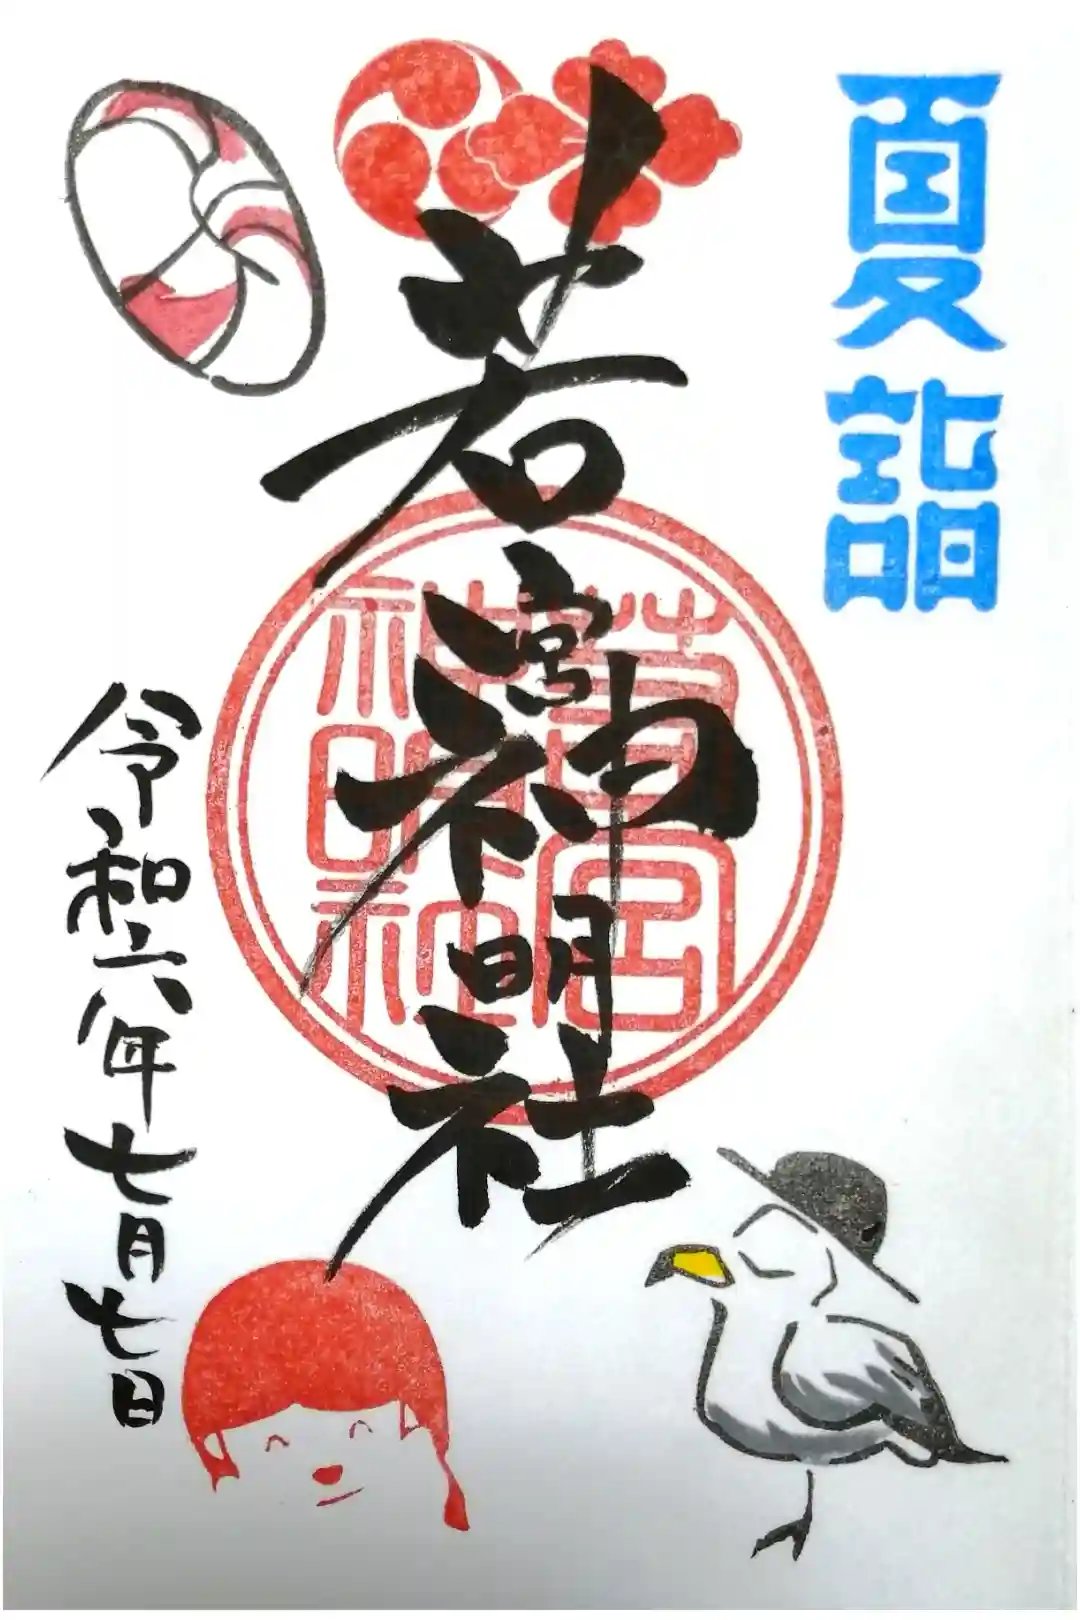 夏詣
若宮神明社
若宮
神明社
令和六年七月七日